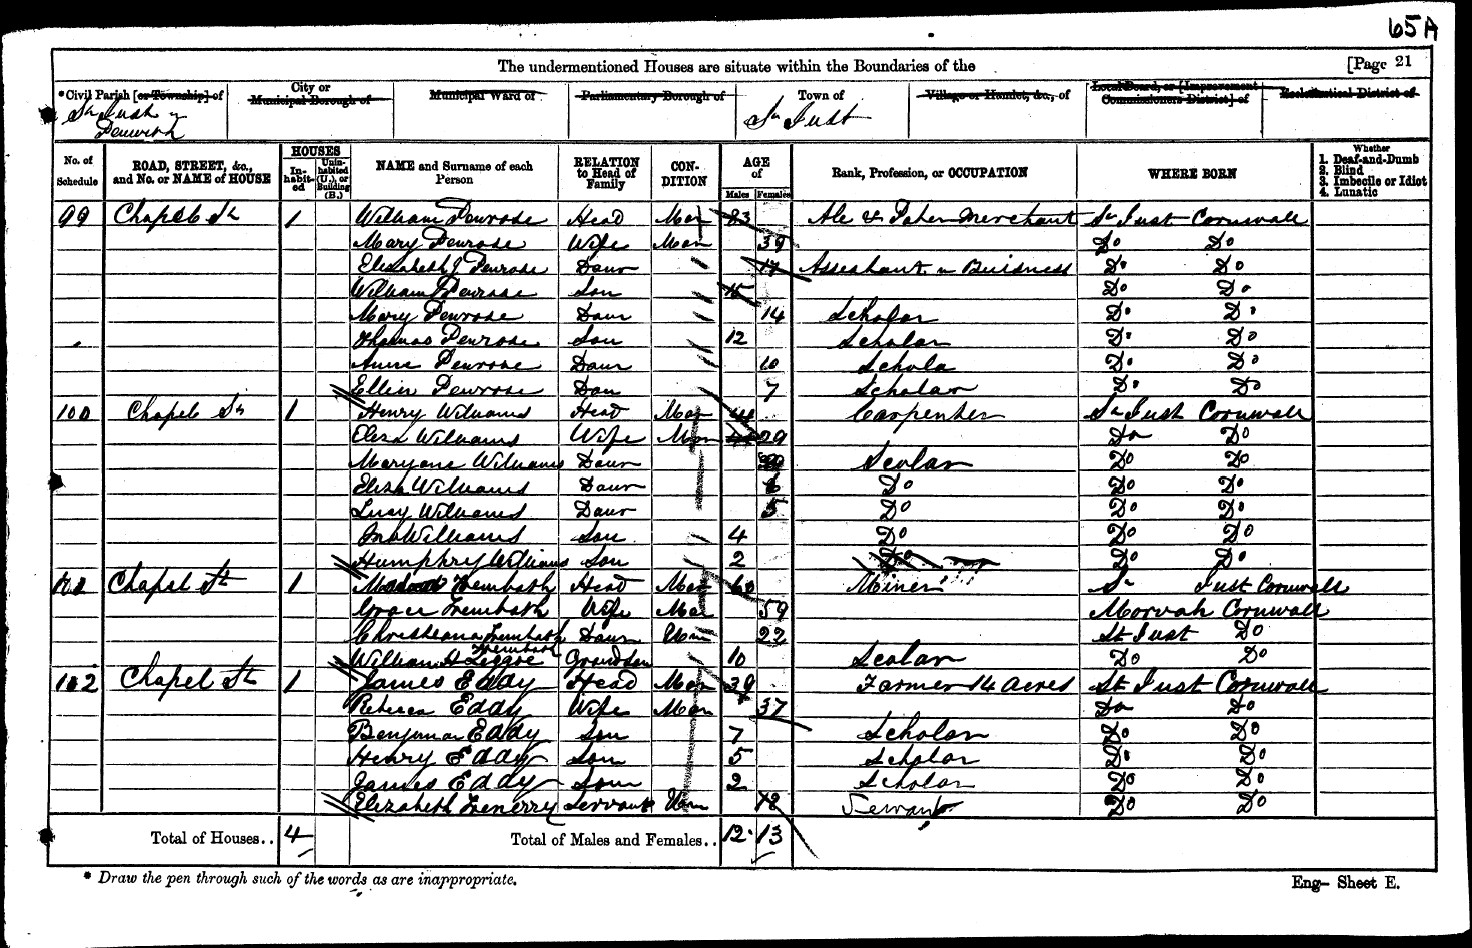 65A
The undermentioned Houses are situate within the Boundaries of the [Page 21
*Civil Parish [or Township] of City or Municipal Borough of Municipal Ward of Parliamentary Borough of Town of Village or Hamlet, &c., of Local Board, or [Improvement Commissioners District] of Ecclesiastical District of
St Just in Penwith St Just
No. of Schedule ROAD, STREET, &c., and No. or NAME of HOUSE HOUSES In-habit-ed Unin-habited (U.), or Building (B.) NAME and Surname of each Person RELATION to Head of Family CON-DITION AGE of Males Females Rank, Profession, or OCCUPATION WHERE BORN Whether 1. Deaf-and-Dumb 2. Blind 3. Imbecile or Idiot 4. Lunatic
99 Chapel St 1 William Penrose Head Mar Ale & Porter Merchant St Just Cornwall
Mary Penrose Wife Mar 39 Do Do
Elizabeth J Penrose Daur 17 Do Do
William Penrose Son 15 Do Do
Mary Penrose Daur 14 Scholar Do Do
Thomas Penrose Son 12 Scholar Do Do
Anne Penrose Daur 10 Schola Do Do
Ellin Penrose Dau 7 Scholar Do Do
100 Chapel St 1 Henry Williams Head Mar Carpenter St Just Cornwall
Eliza Williams Wife Mar 29 Do Do
Maryane Williams Daur Scolar Do Do
Eliza Williams Daur 6 Do Do Do
Lucy Williams Daur 5 Do Do Do
Jno Williams Son 4 Do Do Do
Humphry Williams Son 2 Do Do
101 Chapel St 1 Trembath Head Mar 60 Miner St Just Cornwall
Grace Trembath Wife Mar 59 Morvah Cornwall
Christeana Trembath Daur Unm 22 St Just Do
Trembath
William H Leggoe Grandson 10 Scolar Do Do
102 Chapel St 1 James Eddy Head Mar 39 Farmer 14 Acres St Just Cornwall
Rebeca Eddy Wife Mar 37 Do Do
Benjamin Eddy Son 7 Scholar Do Do
Henry Eddy Son 5 Scholar Do Do
James Eddy Son 2 Scholar Do Do
Elizabeth Trenerry Servant Unm 18 Servant Do Do
Total of Houses.. 4 Total of Males and Females.. 12 13
* Draw the pen through such of the words as are inappropriate.
Eng- Sheet E.